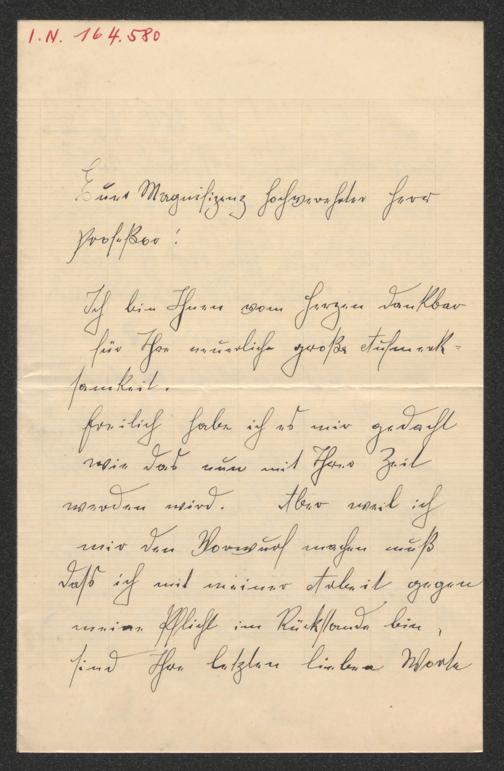 I.N. 164.580
Euer Magnifizenz hochverehrter Herr
Profeßor!
Ich bin Ihnen vom Herzen dankbar
für Ihre neuerliche große Aufmerk-
samkeit.
Freilich habe ich es mir gedacht
wie das nun mit Ihrer Zeit
werden wird. Aber weil ich
mir den Vorwurf machen muß
dass ich mit meiner Arbeit gegen
meine Pflicht im Rückstande bin,
sind Ihre letzten lieben Worte